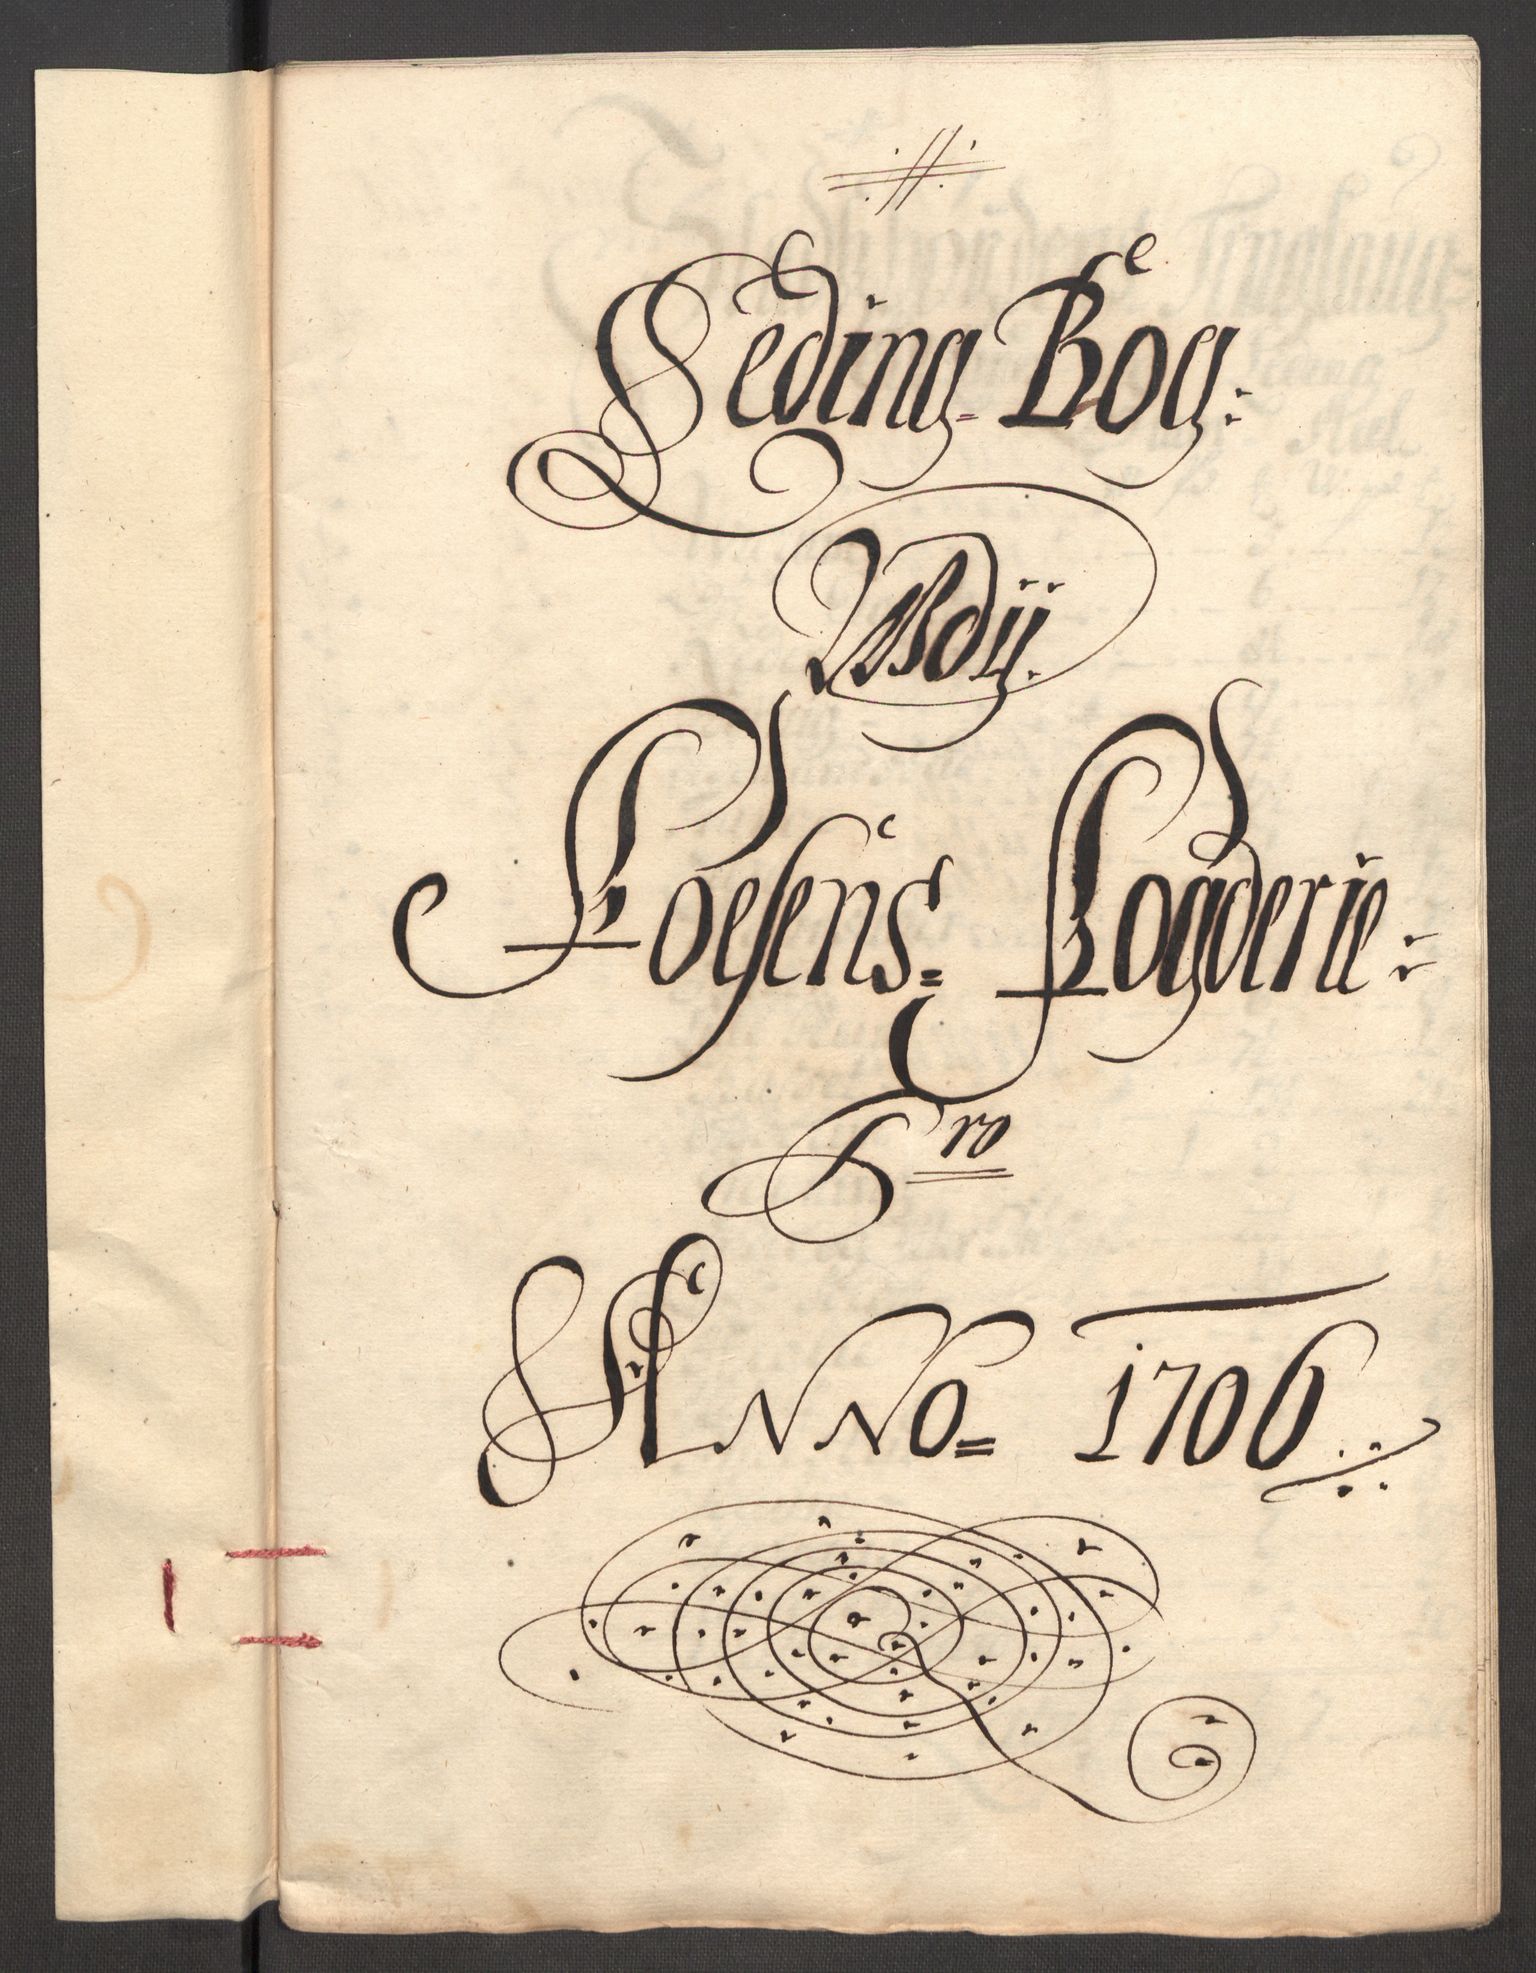 Leding Bog:
Udj
Fosens Fogderie:
Pro
Anno 1706